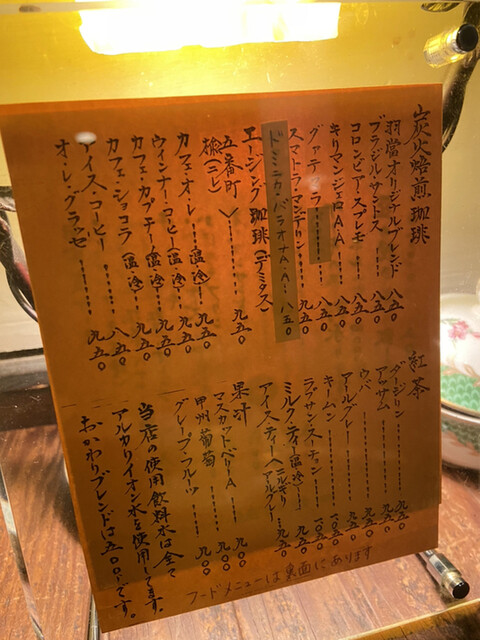 炭火焙煎珈琲
羽當オリジナルブレンド 八五〇
ブラジル・サントス 八五〇
コロンビア・スプレモ 八五〇
キリマンジャロAA 八五〇
グァテマラ 八五〇
スマトラ・マンデリン 九五〇
ドミニカ・バラオナA.A. 八五〇
エージング珈琲(デミタス)
五番町
九五〇
カフェ・オ・レ 九五〇
ウィンナー・コーヒー(温・冷) 九五〇
カフェ・カプチーノ(温・冷) 九五〇
カフェ・ショコラ(温・冷) 九五〇
アイス・コーヒー 八五〇
オ・レ・グラッセ 九五〇
紅茶
ダージリン 九五〇
アッサム 九五〇
ウバ 九五〇
アールグレー 九五〇
キームン 一〇五〇
ラプサン・スーチョン 一〇五〇
ミルク・ティ(温・冷) 九五〇
アイスティー 九五〇
果汁
マスカットベリーA 九〇〇
甲州葡萄 九〇〇
グレープ・フルーツ 九〇〇
当店の使用飲料水は全て
アルカリイオン水を使用してます。
おかわりブレンドは五〇〇です。
フードメニューは裏面にあります